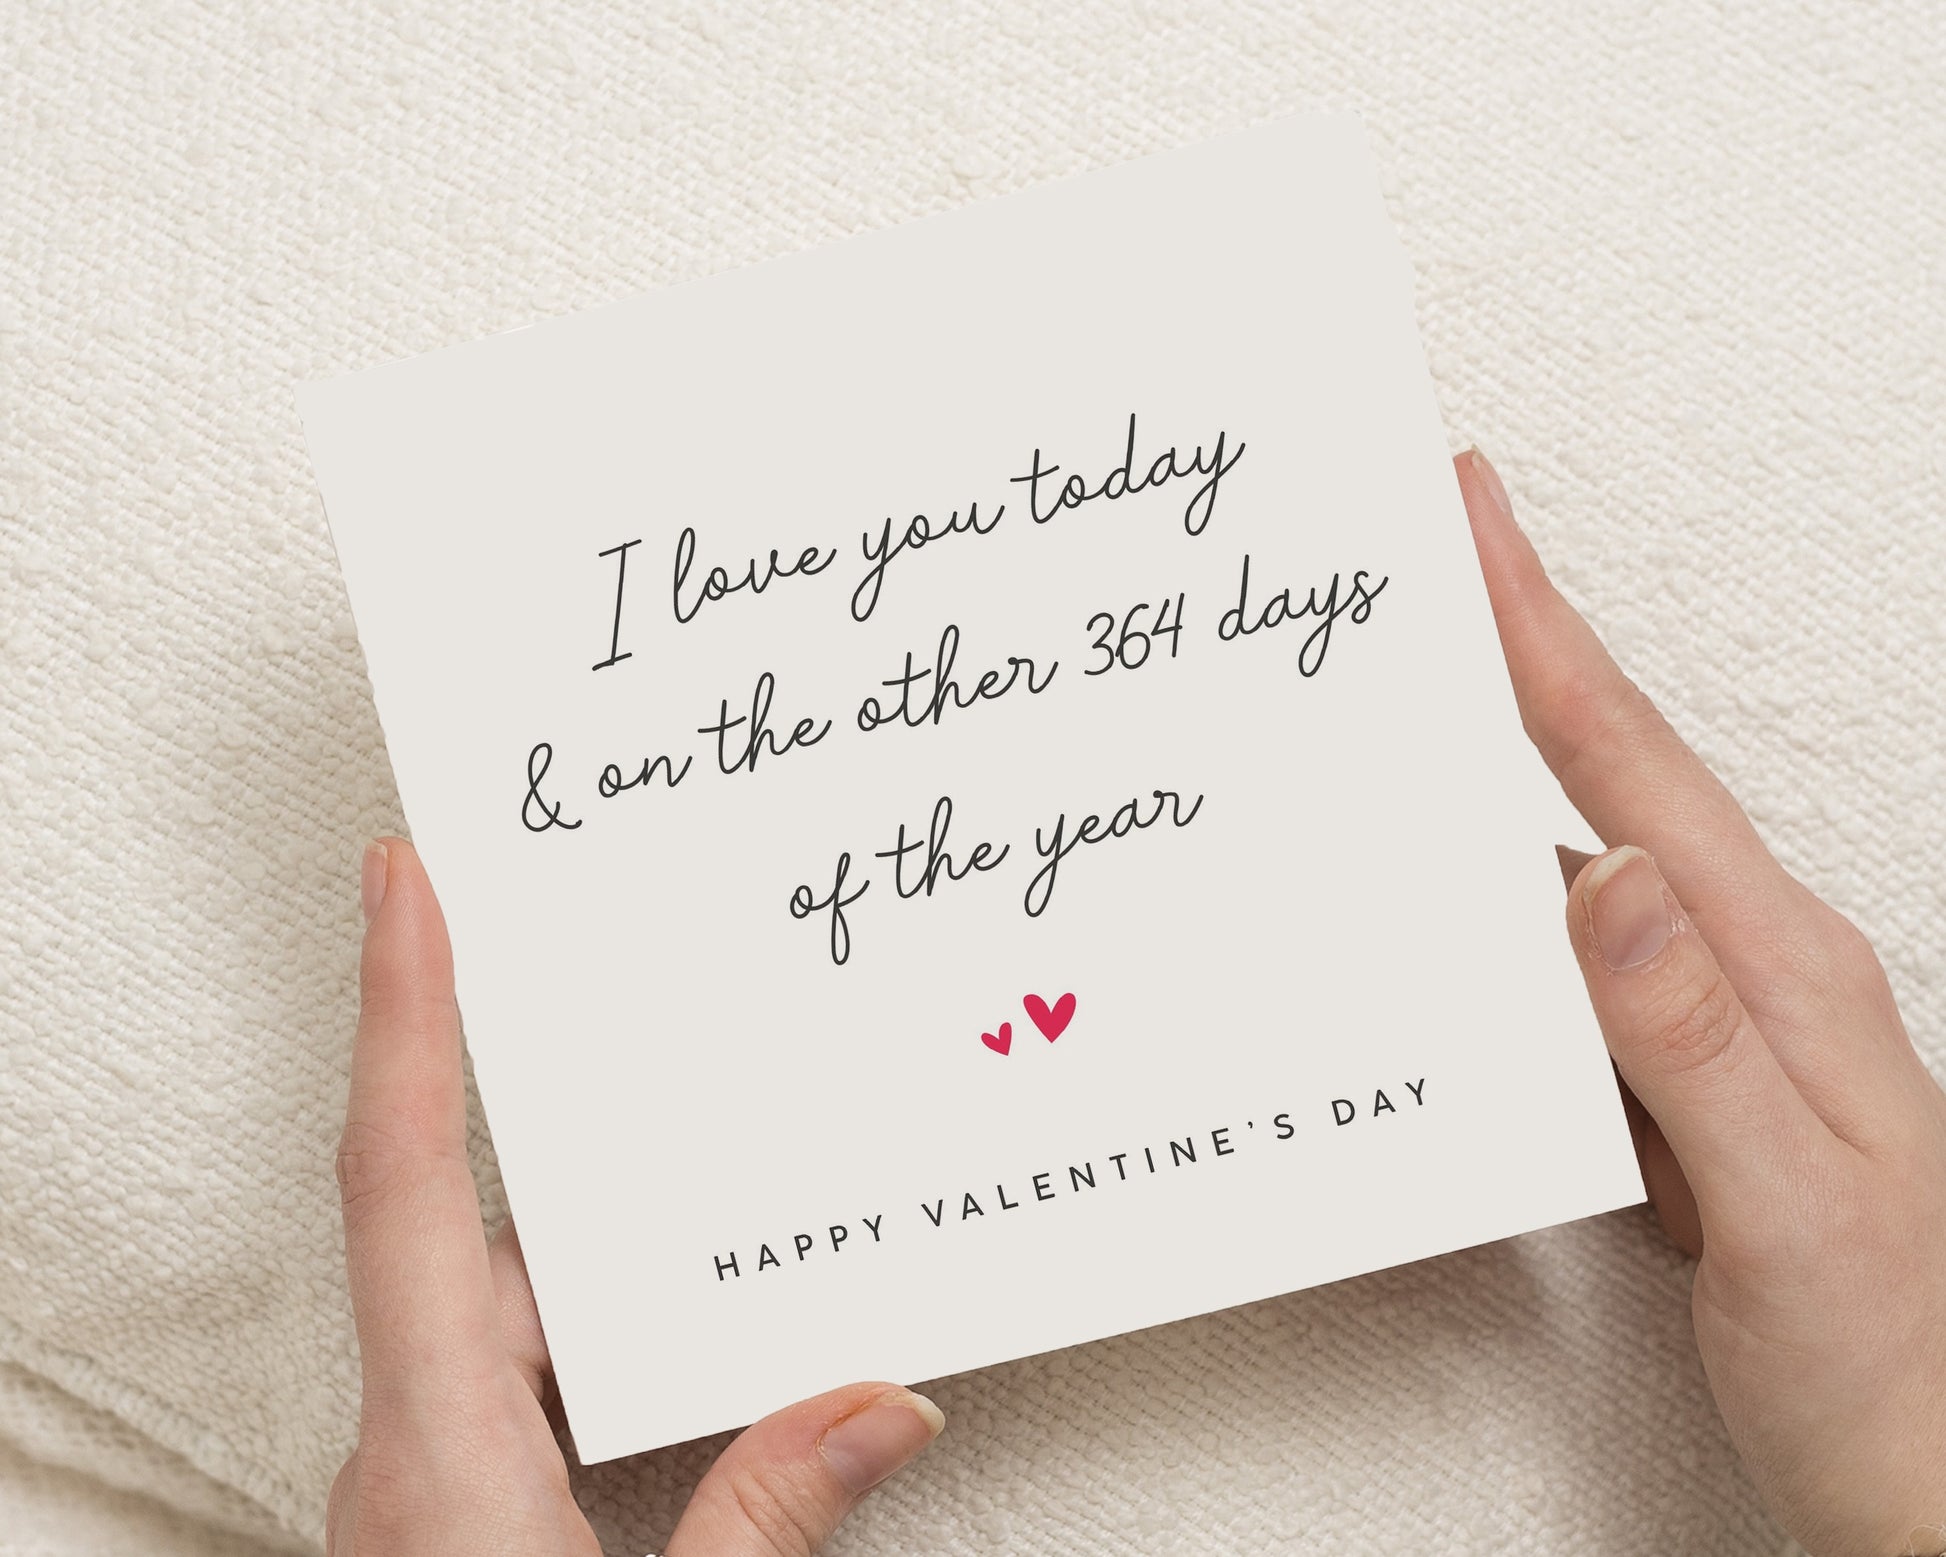 I love you today
& on the other 364 days
of the year
HAPPY VALENTINE'S DAY